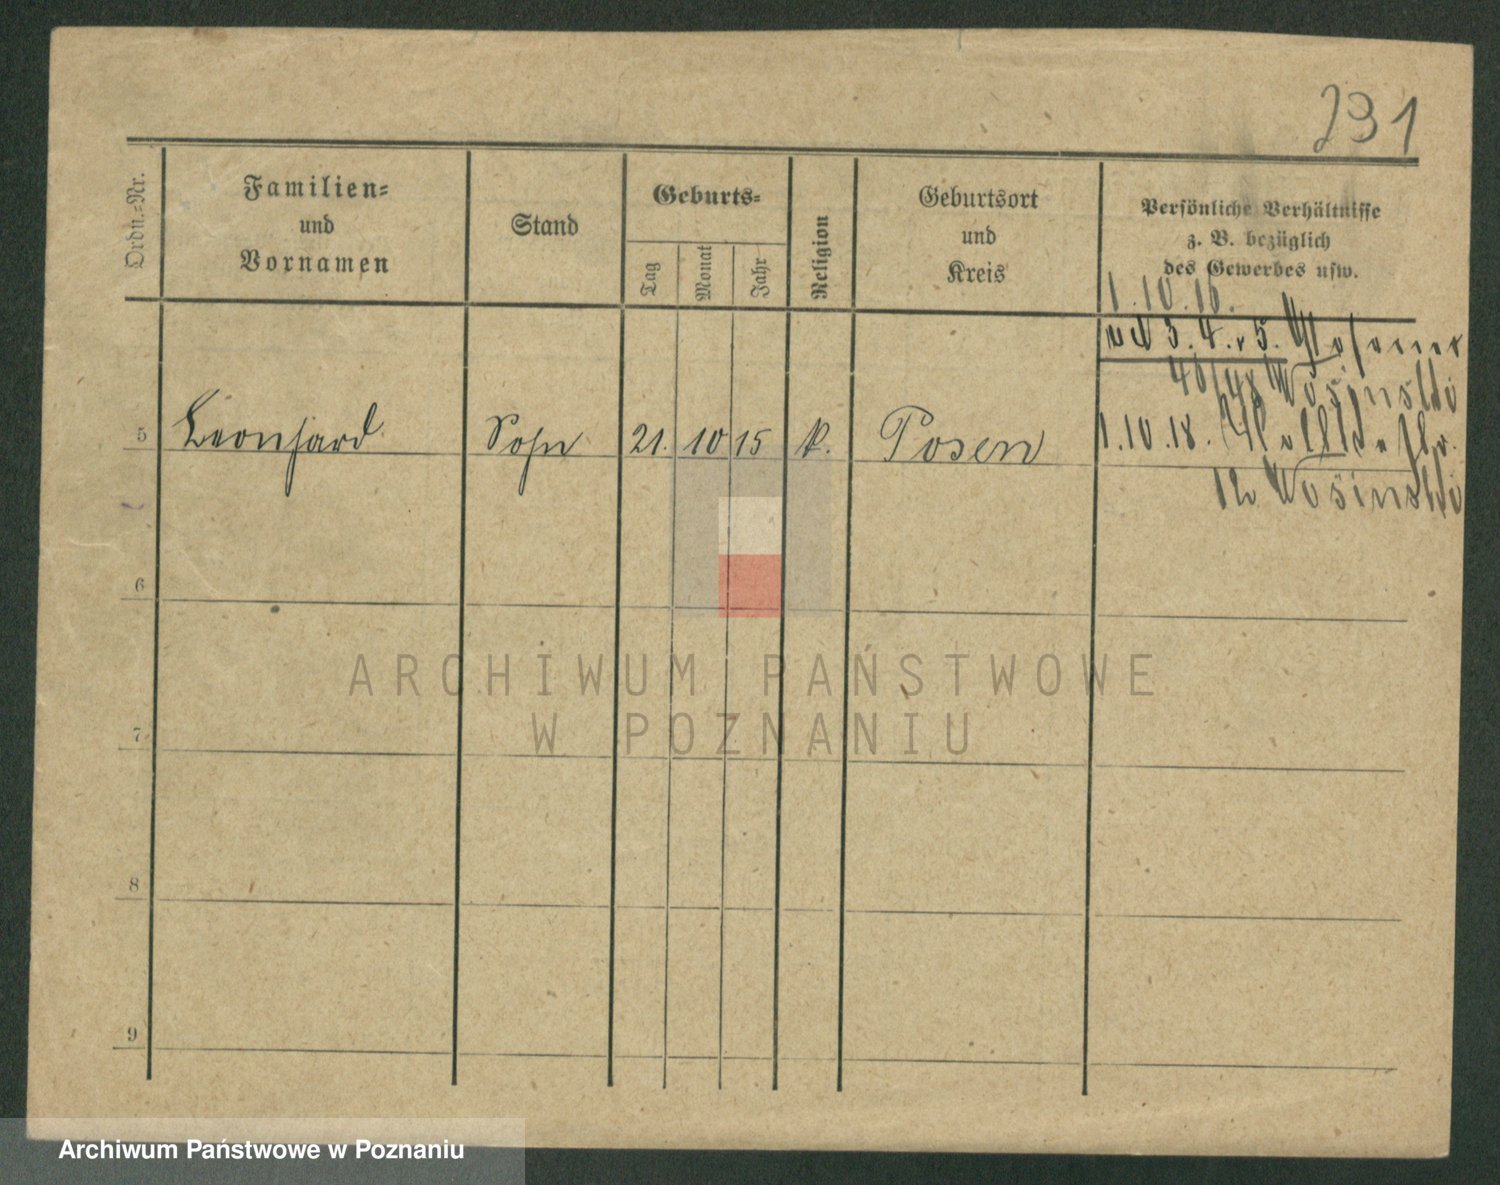 291
Ordn.=Nr.
Familien=
und
Vornamen
Stand
Geburts=
Tag
Monat
Jahr
Religion
Geburtsort
und
Kreis
Persönliche Verhältnisse
z. B. bezüglich
des Gewerbes usw.
1.10.16.
3. 4. 5.
Wosinski
5 Leonhard Sohn 21. 10 15 k. Posen 1.10.18.
12 Wosinski
6
7
8
9
ARCHIWUM PAŃSTWOWE
W POZNANIU
Archiwum Państwowe w Poznaniu